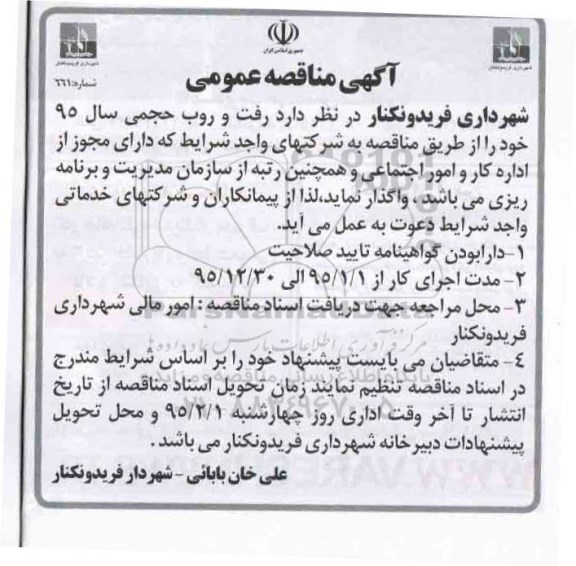 جمهوری اسلامی ایران
شهرداری فریدونکنار
شهرداری فریدونکنار
آگهی مناقصه عمومی
شماره: ۶۶۱
شهرداری فریدونکنار در نظر دارد رفت و روب حجمی سال ۹۵
خود را از طریق مناقصه به شرکتهای واجد شرایط که دارای مجوز از
اداره کار و امور اجتماعی و همچنین رتبه از سازمان مدیریت و برنامه
ریزی می باشد ، واگذار نماید،لذا از پیمانکاران و شرکتهای خدماتی
واجد شرایط دعوت به عمل می آید.
۱-دارابودن گواهینامه تایید صلاحیت
۲- مدت اجرای کار از ۹۵/۱/۱ الی ۹۵/۱۲/۳۰
۳- محل مراجعه جهت دریافت اسناد مناقصه : امور مالی شهرداری
فریدونکنار
٤- متقاضیان می بایست پیشنهاد خود را بر اساس شرایط مندرج
در اسناد مناقصه تنظیم نمایند.زمان تحویل اسناد مناقصه از تاریخ
انتشار تا آخر وقت اداری روز چهارشنبه ۹۵/۲/۱ و محل تحویل
پیشنهادات دبیرخانه شهرداری فریدونکنار می باشد .
علی خان بابائی - شهردار فریدونکنار